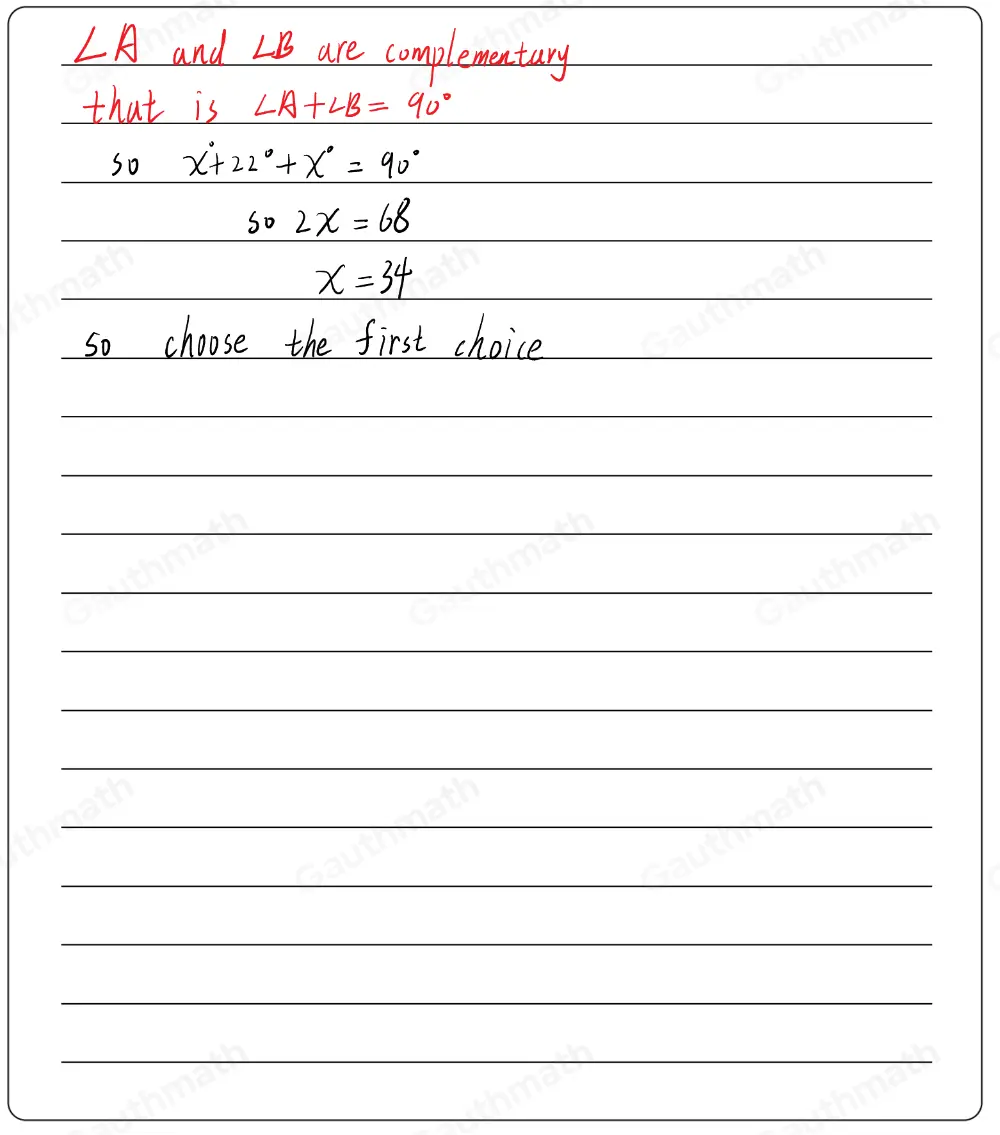 ∠A and ∠B are complementary
that is ∠A+∠B= 90°
so x°+22°+x° = 90°
so 2x = 68
x = 34
so choose the first choice
Gauthmath